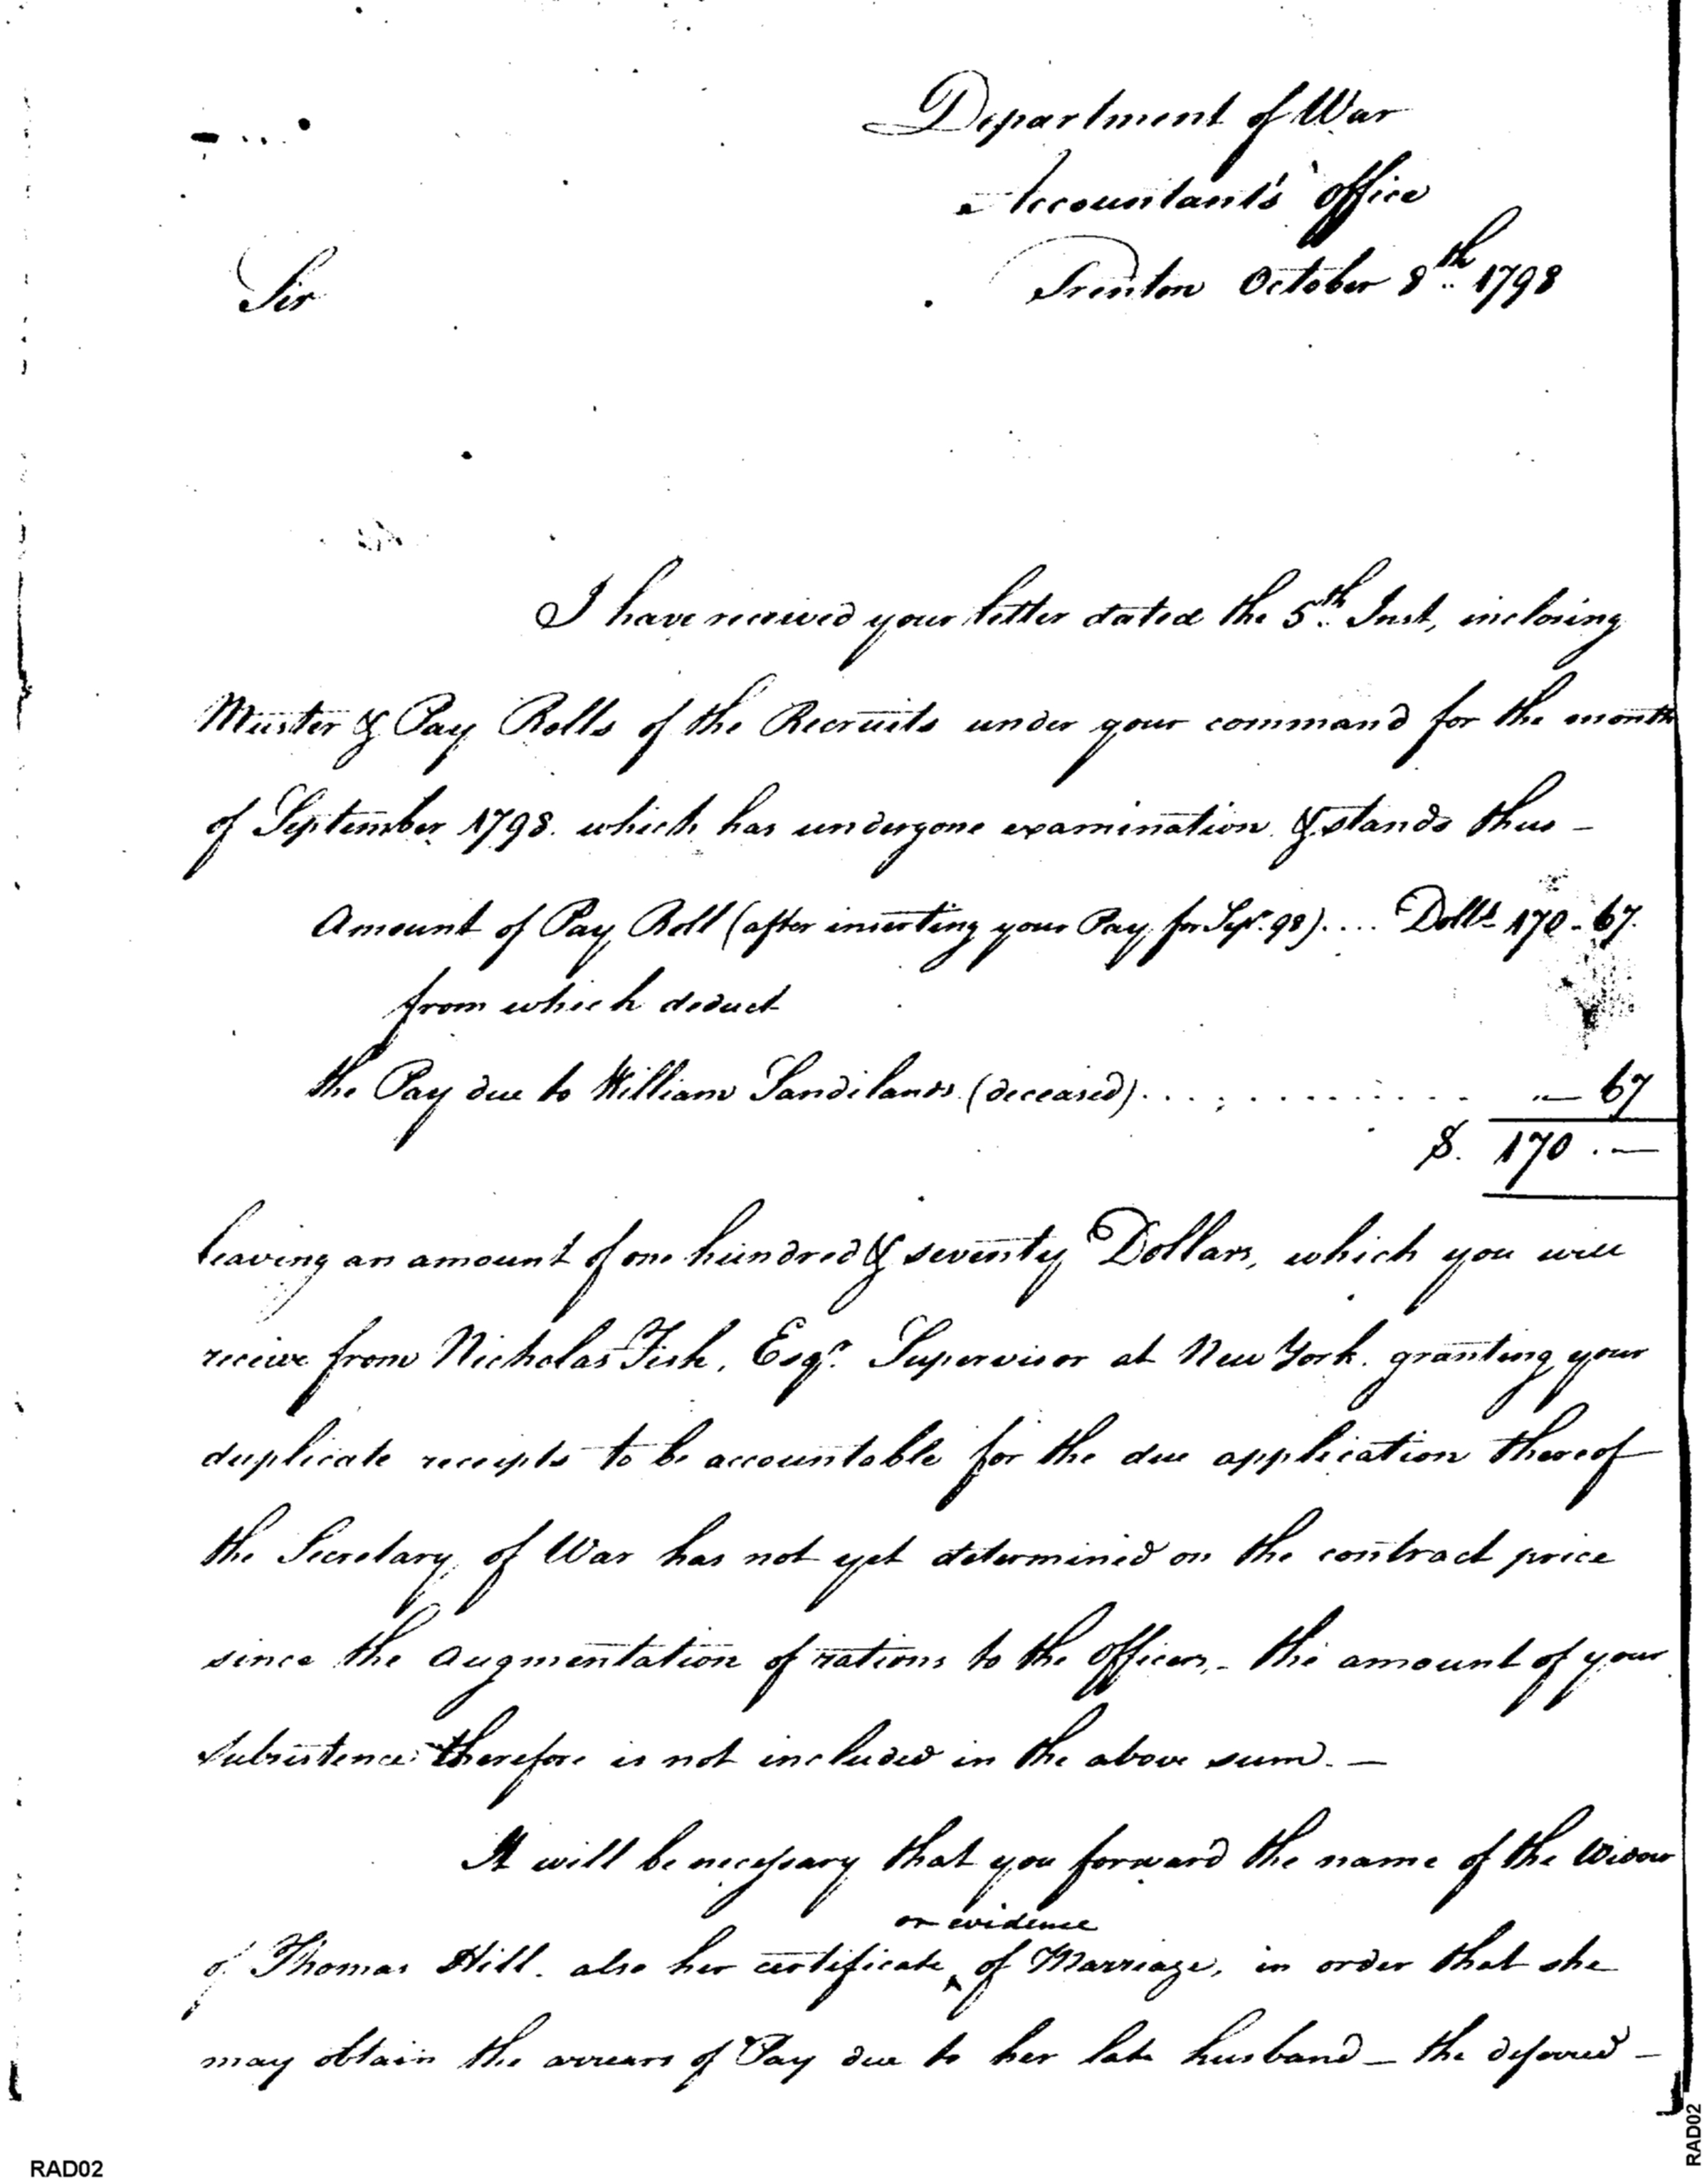 Department of War
Accountant's office
Sir
Trenton October 8th 1798
I have received your letter dated the 5th Inst, inclosing
Muster & Pay Rolls of the Recruits under your command for the month
of September 1798. which has undergone examination & stands thus -
Amount of Pay Roll (after inserting your Pay for Sepr. 98) .... Dolls 170 - 67.
from which deduct
the Pay due to William Sandilands (deceased) ............. - 67
$. 170 . -
leaving an amount of one hundred & seventy Dollars, which you will
receive from Nicholas Fish, Esqr. Supervisor at New York. granting your
duplicate receipts to be accountable for the due application thereof
the Secretary of War has not yet determined on the contract price
since the augmentation of rations to the officers, - the amount of your
subsistence therefore is not included in the above sum. -
It will be necessary that you forward the name of the Widow
or evidence
of Thomas Hill. also her certificate ^ of Marriage, in order that she
may obtain the arrears of Pay due to her late husband - the deferred -
RAD02
RAD02